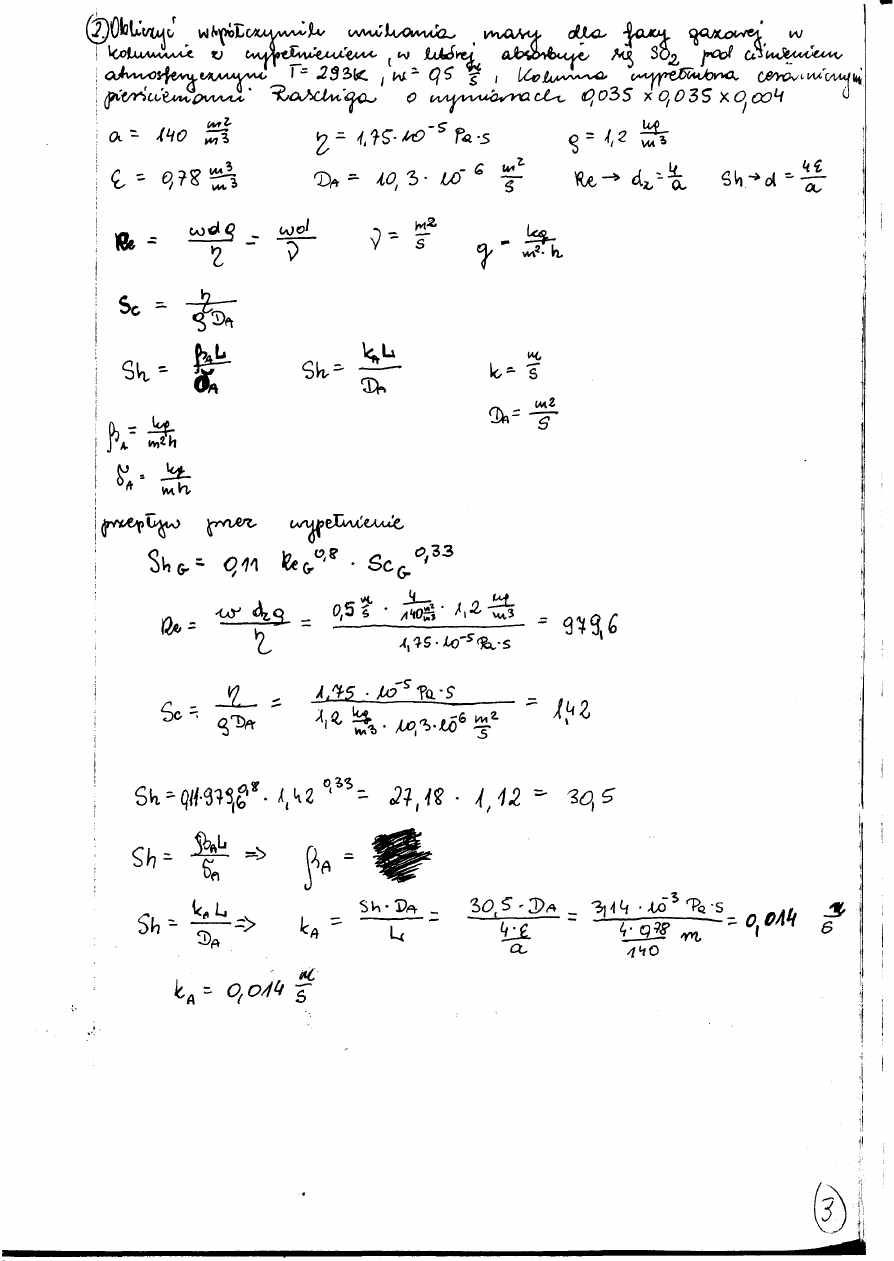 ② Obliczyć współczynnik wnikania masy dla fazy gazowej w
kolumnie z wypełnieniem, w której absorbuje się SO2 pod ciśnieniem
atmosferycznym T = 293K, w = 0,5 m/s, Kolumna wypełniona ceramicznymi
pierścieniami Raschiga o wymiarach 0,035 x 0,035 x 0,004
a = 140 m²/m³   η = 1,75·10⁻⁵ Pa·s   ρ = 1,2 kg/m³
ε = 0,78 m³/m³   DA = 10,3·10⁻⁶ m²/s   Re → dz = 4/a   Sh → d = 4ε/a
Re = wdρ/η = wd/ν   ν = m²/s   g = kg/m²·h
Sc = η/ρDA
Sh = βAL/δA   Sh = kAL/DA   k = m/s
DA = m²/s
βA = kg/m²h
δA = kg/mh
przepływ przez wypełnienie
ShG = 0,11 ReG^0,8 · ScG^0,33
Re = w dz ρ/η = 0,5 m/s · 4/140 m²/m³ · 1,2 kg/m³ / 1,75·10⁻⁵ Pa·s = 979,6
Sc = η/ρDA = 1,75·10⁻⁵ Pa·s / 1,2 kg/m³ · 10,3·10⁻⁶ m²/s = 1,42
Sh = 0,11·979,6^0,8 · 1,42^0,33 = 27,18 · 1,12 = 30,5
Sh = βAL/δA ⇒ βA =
Sh = kAL/DA ⇒ kA = Sh·DA/L = 30,5·DA / 4·ε/a = 3,14·10⁻³ Pa·s / 4·0,78/140 m = 0,014 m/s
kA = 0,014 m/s
3